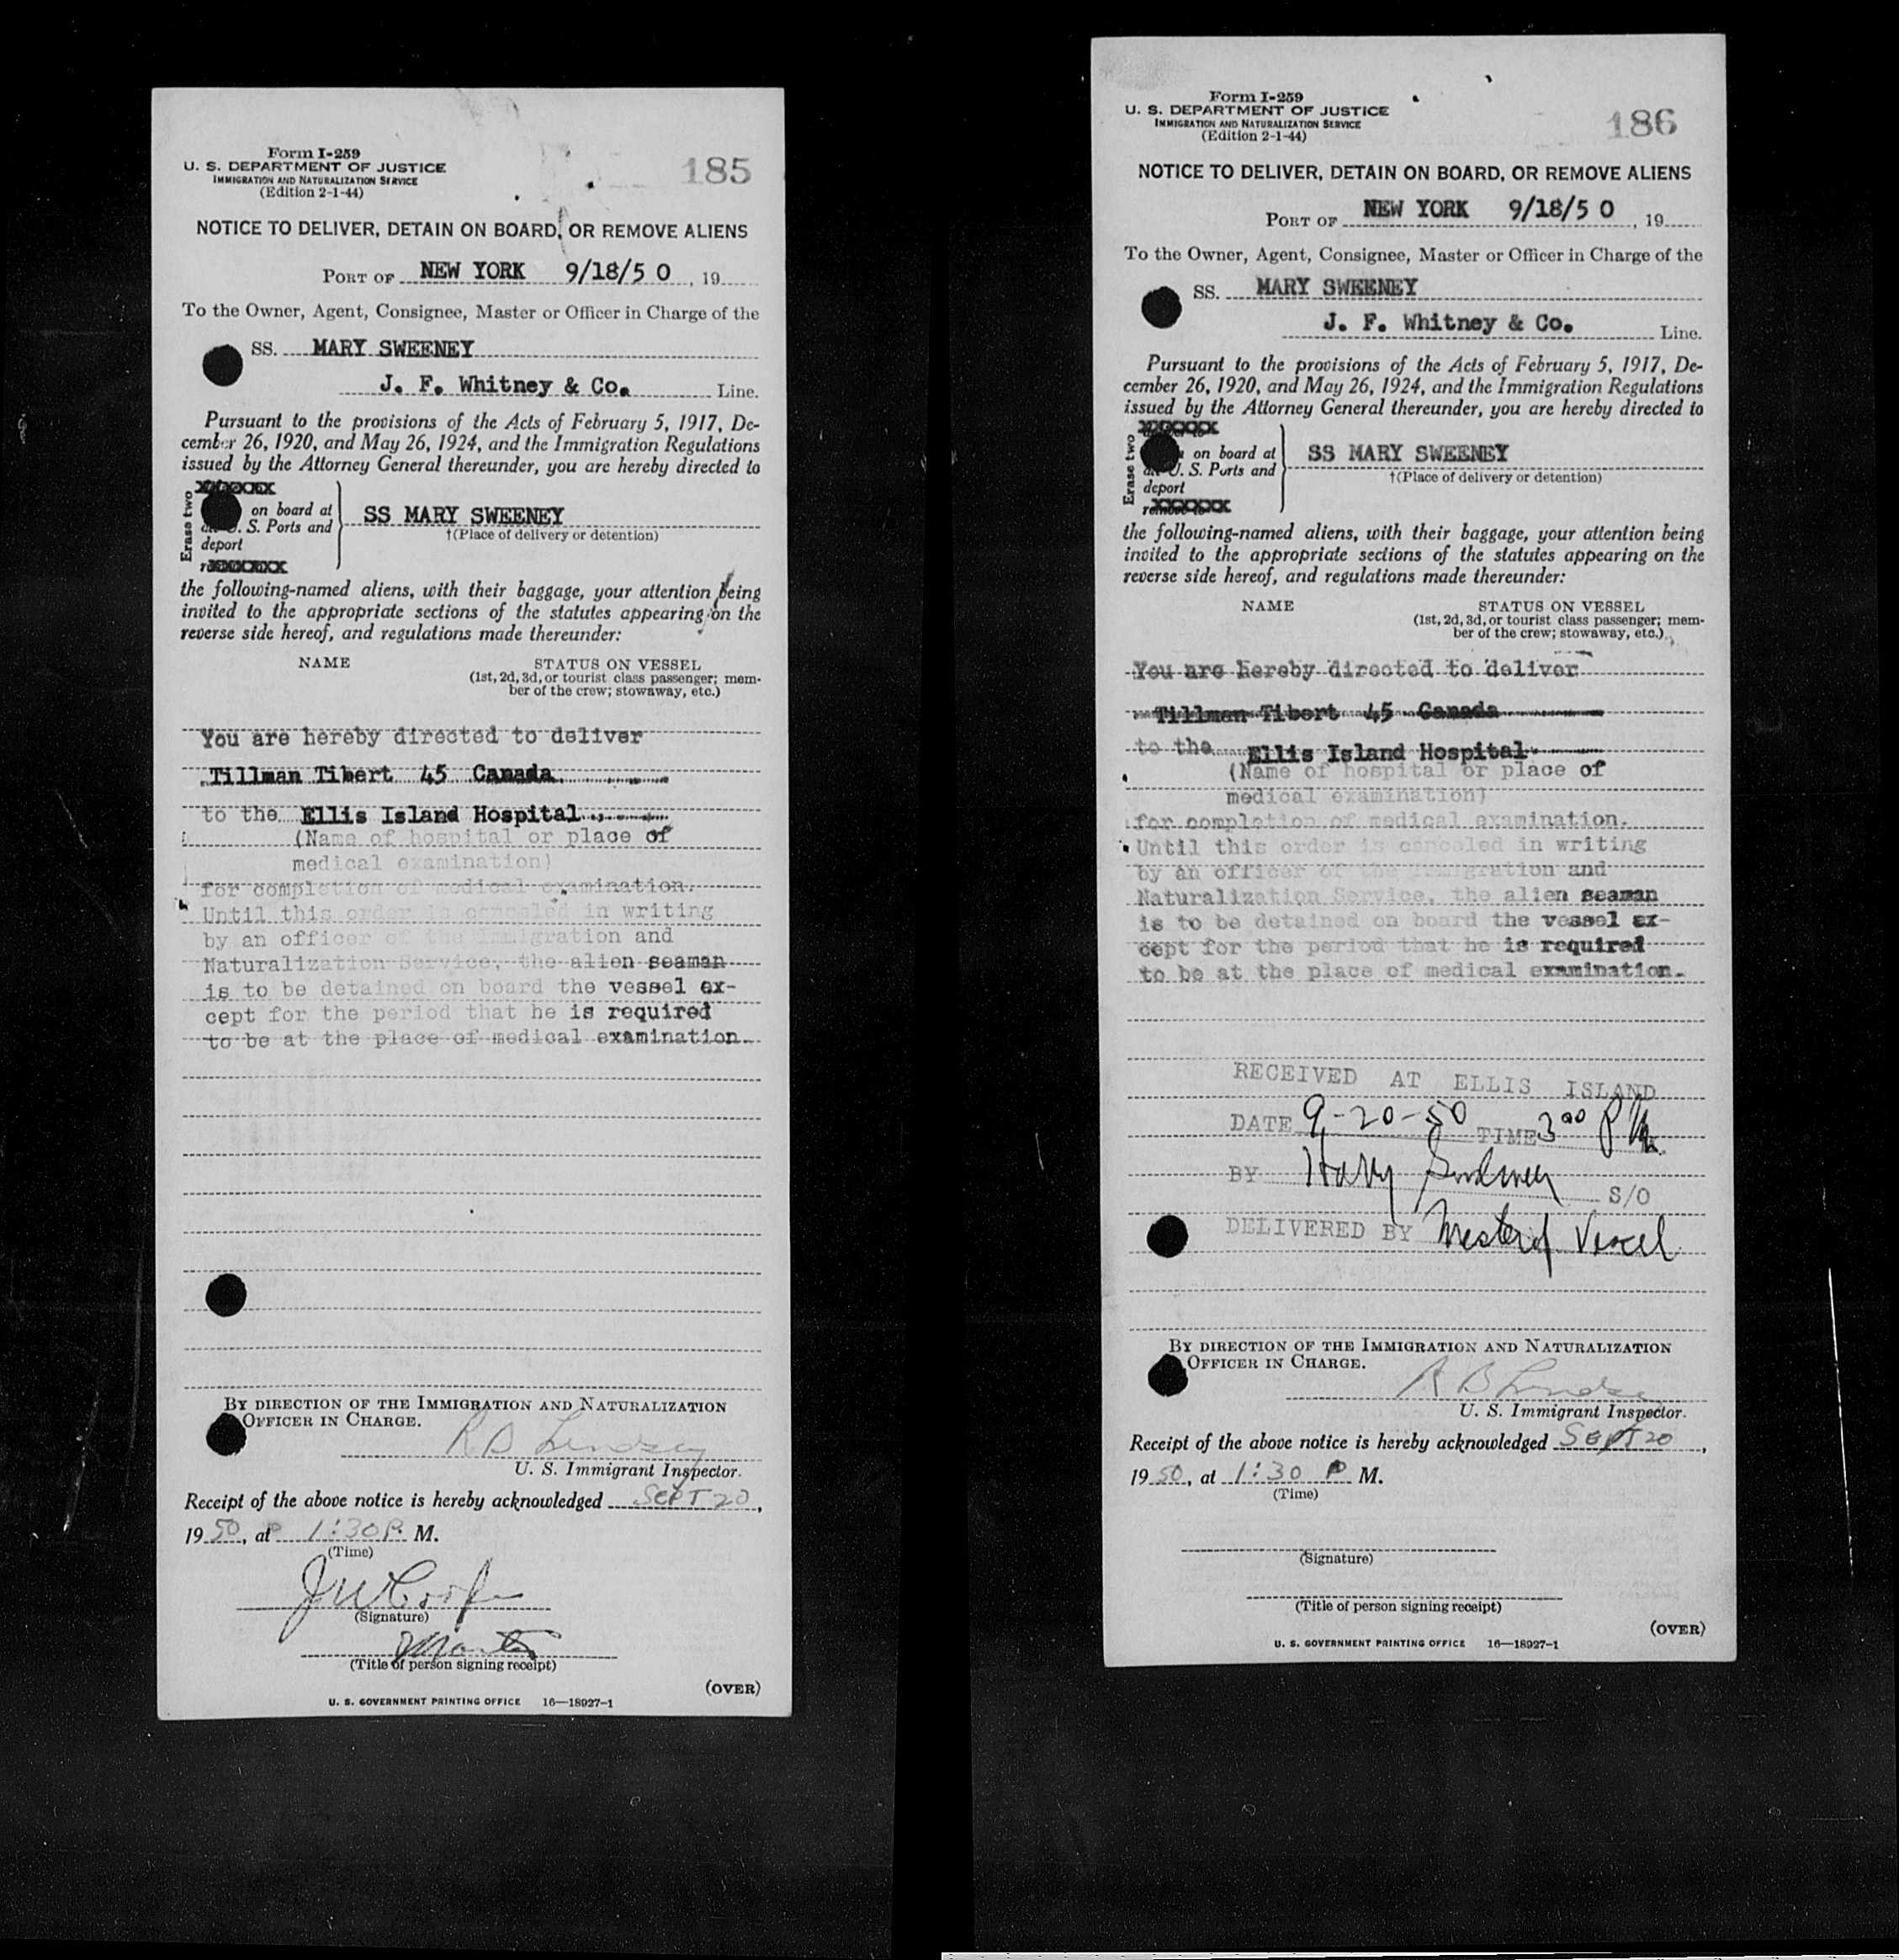 Form I-259
U. S. DEPARTMENT OF JUSTICE
IMMIGRATION AND NATURALIZATION SERVICE
(Edition 2-1-44)
185
NOTICE TO DELIVER, DETAIN ON BOARD, OR REMOVE ALIENS
PORT OF NEW YORK 9/18/5 0, 19
To the Owner, Agent, Consignee, Master or Officer in Charge of the
SS. MARY SWEENEY
J. F. Whitney & Co. Line.
Pursuant to the provisions of the Acts of February 5, 1917, De-
cember 26, 1920, and May 26, 1924, and the Immigration Regulations
issued by the Attorney General thereunder, you are hereby directed to
Erase two
on board at
S. Ports and
deport
SS MARY SWEENEY
†(Place of delivery or detention)
the following-named aliens, with their baggage, your attention being
invited to the appropriate sections of the statutes appearing on the
reverse side hereof, and regulations made thereunder:
NAME STATUS ON VESSEL
(1st, 2d, 3d, or tourist class passenger; mem-
ber of the crew; stowaway, etc.)
You are hereby directed to deliver
Tillman Tibert 45 Canada
to the Ellis Island Hospital
(Name of hospital or place of
medical examination)
for completion of medical examination.
Until this order is canceled in writing
by an officer of the Immigration and
Naturalization Service, the alien seaman
is to be detained on board the vessel ex-
cept for the period that he is required
to be at the place of medical examination.
BY DIRECTION OF THE IMMIGRATION AND NATURALIZATION
OFFICER IN CHARGE.
R B Lindsey
U. S. Immigrant Inspector.
Receipt of the above notice is hereby acknowledged SEPT 20,
19 50, at 1:30 P. M.
(Time)
(Signature)
(Title of person signing receipt)
(OVER)
U. S. GOVERNMENT PRINTING OFFICE 16—18927-1
Form I-259
U. S. DEPARTMENT OF JUSTICE
IMMIGRATION AND NATURALIZATION SERVICE
(Edition 2-1-44)
186
NOTICE TO DELIVER, DETAIN ON BOARD, OR REMOVE ALIENS
PORT OF NEW YORK 9/18/5 0, 19
To the Owner, Agent, Consignee, Master or Officer in Charge of the
SS. MARY SWEENEY
J. F. Whitney & Co. Line.
Pursuant to the provisions of the Acts of February 5, 1917, De-
cember 26, 1920, and May 26, 1924, and the Immigration Regulations
issued by the Attorney General thereunder, you are hereby directed to
Erase two
on board at
U. S. Ports and
deport
SS MARY SWEENEY
†(Place of delivery or detention)
the following-named aliens, with their baggage, your attention being
invited to the appropriate sections of the statutes appearing on the
reverse side hereof, and regulations made thereunder:
NAME STATUS ON VESSEL
(1st, 2d, 3d, or tourist class passenger; mem-
ber of the crew; stowaway, etc.)
You are hereby directed to deliver
Tillman Tibert 45 Canada
to the Ellis Island Hospital
(Name of hospital or place of
medical examination)
for completion of medical examination.
Until this order is canceled in writing
by an officer of the Immigration and
Naturalization Service, the alien seaman
is to be detained on board the vessel ex-
cept for the period that he is required
to be at the place of medical examination.
RECEIVED AT ELLIS ISLAND
DATE 9-20-50 TIME 3 00 P M.
BY Harry S/O
DELIVERED BY Master of Vessel
BY DIRECTION OF THE IMMIGRATION AND NATURALIZATION
OFFICER IN CHARGE.
R B Lindsey
U. S. Immigrant Inspector.
Receipt of the above notice is hereby acknowledged SEPT 20,
19 50, at 1:30 P M.
(Time)
(Signature)
(Title of person signing receipt)
(OVER)
U. S. GOVERNMENT PRINTING OFFICE 16—18927-1